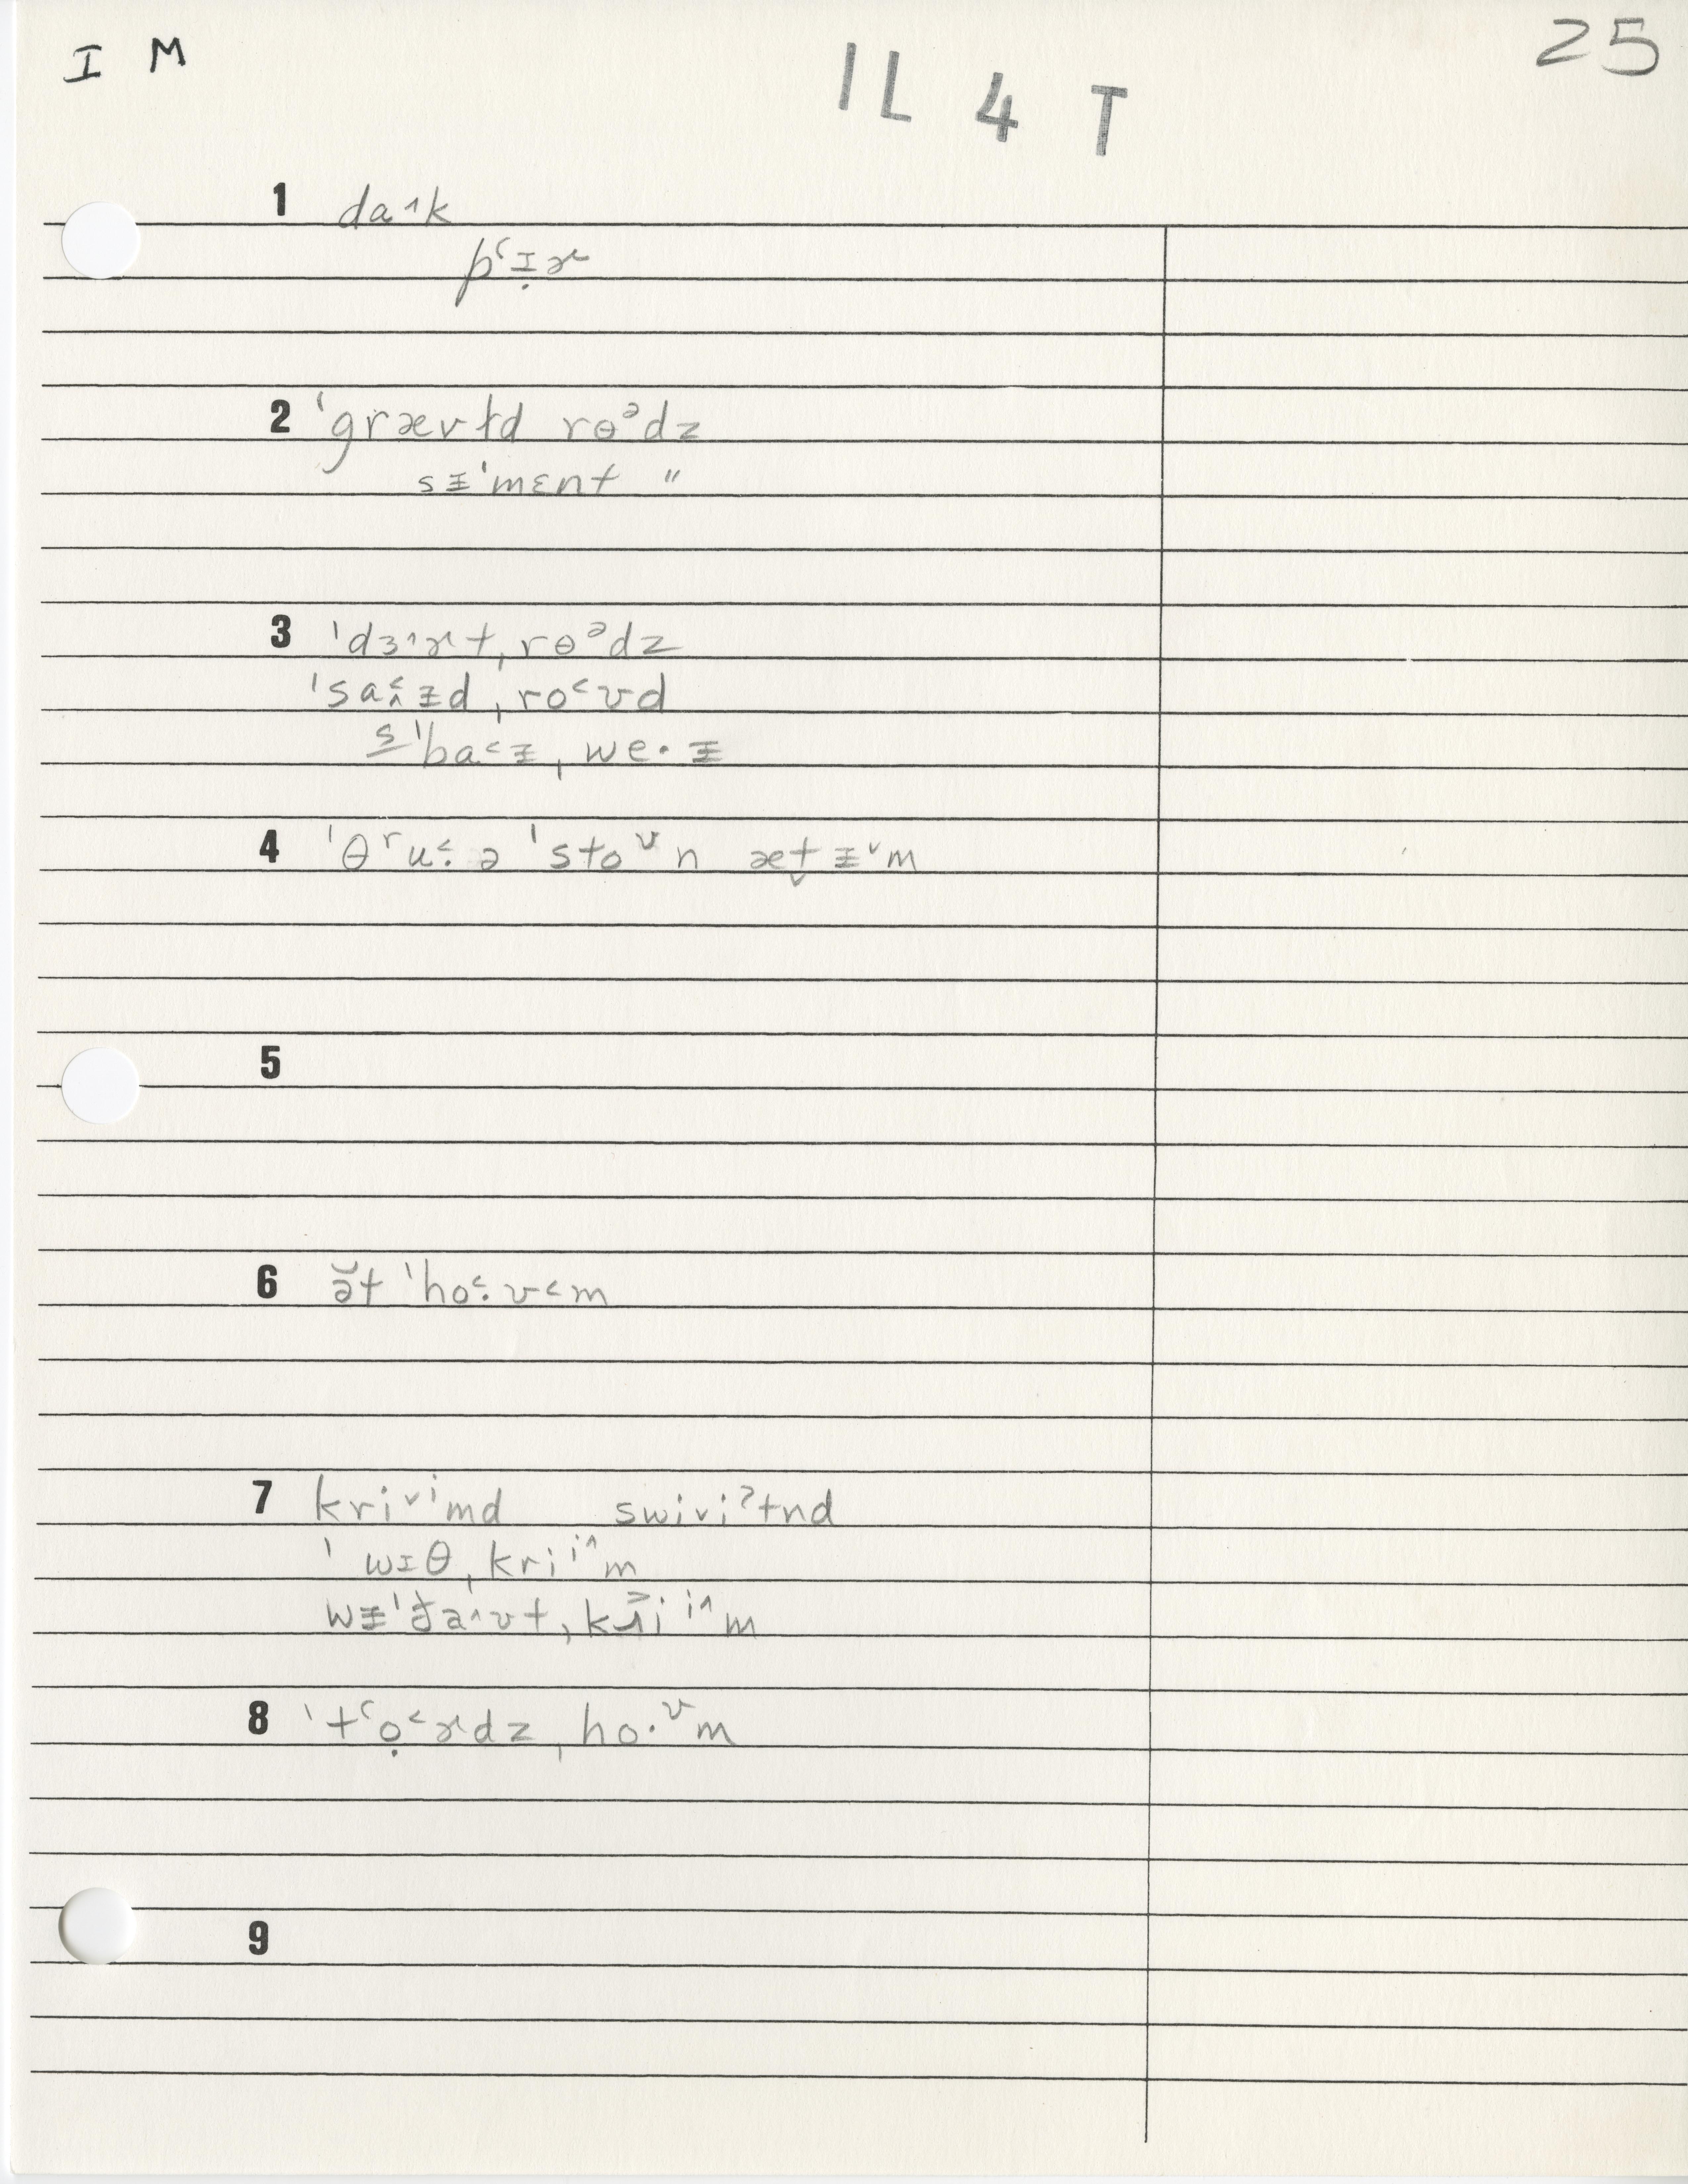 I M
1L 4 T
25
1 da˄k
pʻɪ̣ɚ
2 ˈgrævɫd rɵᵊdz
sᵻˈmɛnt "
3 ˈdɜ˄ɚt ˌrɵᵊdz
ˈsa˂̭ᵻd ˌro˂ʊd
s̲ˈba˂ᵻ ˌwe·ᵻ
4 ˈθʳu˂: ə ˈstoᶷn æt̬ ᵻ˅m
5
6 ə̆t ˈho˂:ʊ˂m
7 kri˅ⁱmd swi˅iˀtnd
ˈwɪθ ˌkriⁱ˄m
wᵻˈt̬a˄ʊt ˌkɹ̄iⁱ˄m
8 ˈtʻọ˂ɚdz ˌho·ᶷm
9